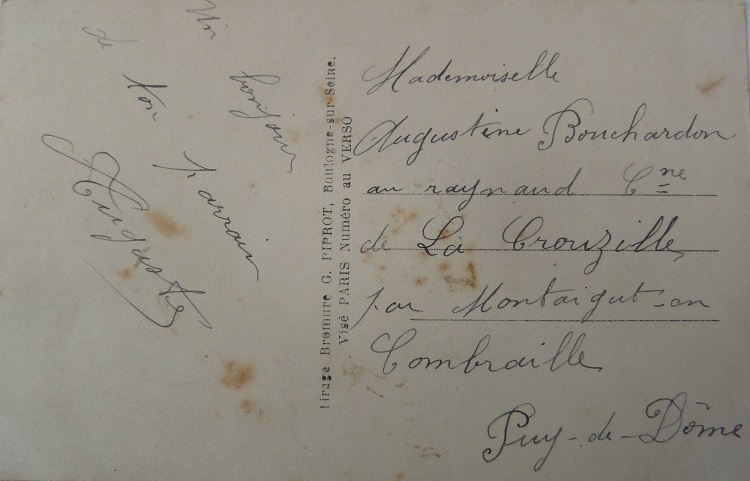 Un bonjour
de ton parrain
Auguste
Tirage Bromure G. PIPROT, Boulogne-sur-Seine.
Visé PARIS Numéro au VERSO
Mademoiselle
Augustine Bouchardon
au raynaud Cne
de La Crouzille
par Montaigut-en
Combraille
Puy-de-Dôme